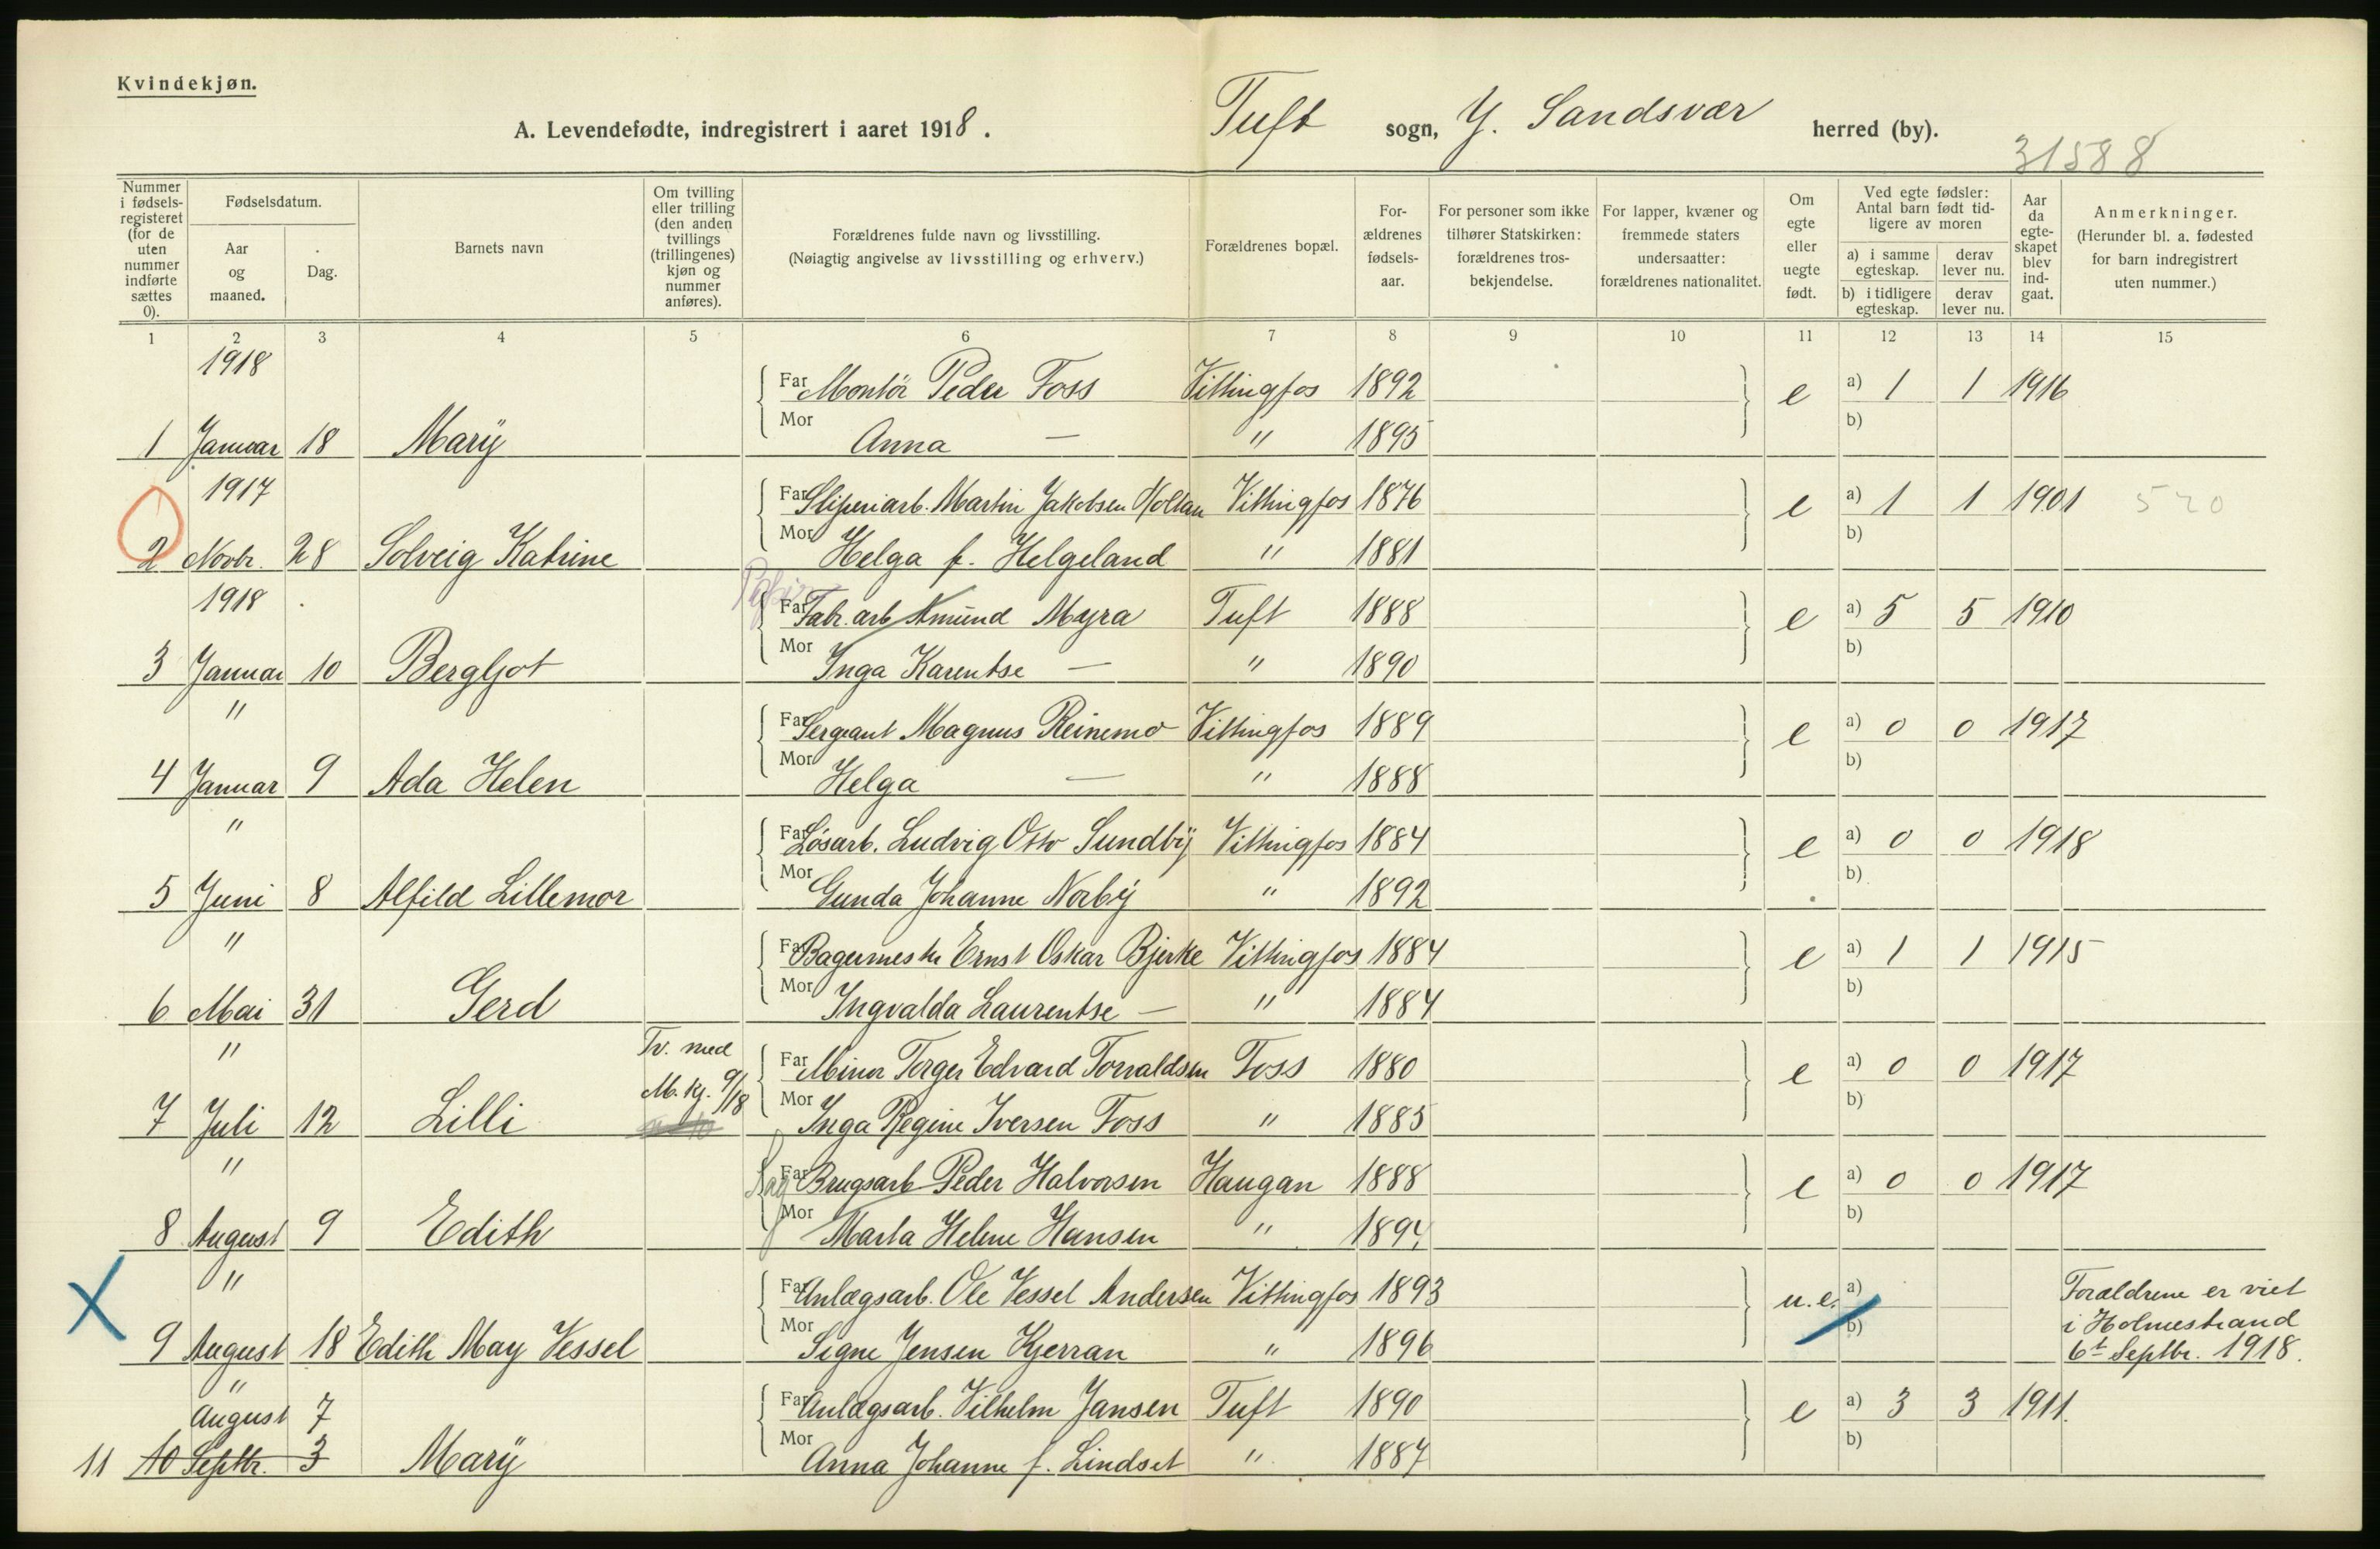 Kvindekjøn.
A. Levendefødte, indregistrert i aaret 1918. Tuft sogn, Y. Sandsvær herred (by).
31588
Nummer i fødselsregisteret (for de uten nummer indførte sættes 0).
Fødselsdatum.
Aar og maaned.
Dag.
Barnets navn
Om tvilling eller trilling (den anden tvillings (trillingenes) kjøn og nummer anføres).
Forældrenes fulde navn og livsstilling.
(Nøiagtig angivelse av livsstilling og erhverv.)
Forældrenes bopæl.
Forældrenes fødselsaar.
For personer som ikke tilhører Statskirken: forældrenes trosbekjendelse.
For lapper, kvæner og fremmede staters undersaatter: forældrenes nationalitet.
Om egte eller uegte født.
Ved egte fødsler: Antal barn født tidligere av moren
a) i samme egteskap.
derav lever nu.
b) i tidligere egteskap.
derav lever nu.
Aar da egteskapet blev indgaat.
Anmerkninger.
(Herunder bl. a. fødested for barn indregistrert uten nummer.)
1 2 3 4 5 6 7 8 9 10 11 12 13 14 15
1918
Far Montør Peder Foss Vittingfos 1892 e a) 1 1 1916
1 Januar 18 Marÿ Mor Anna — " 1895 b)
1917
Far Sliperiarb. Martin Jakobsen Holtan Vittingfos 1876 e a) 1 1 1901 520
2 Novbr. 28 Solveig Katrine Mor Helga f. Helgeland " 1881 b)
1918
Far Fabr. arb Amund Myra Tuft 1888 e a) 5 5 1910
3 Januar 10 Bergljot Mor Inga Karentse — " 1890 b)
"
Far Sergeant Magnus Reinemo Vittingfos 1889 e a) 0 0 1917
4 Januar 9 Ada Helen Mor Helga — " 1888 b)
"
Far Løsarb. Ludvig Otto Sundbÿ Vittingfos 1884 e a) 0 0 1918
5 Juni 8 Alfild Lillemor Mor Gunda Johanne Norbÿ " 1892 b)
"
Far Bagermester Ernst Oskar Bjerke Vittingfos 1884 e a) 1 1 1915
6 Mai 31 Gerd Mor Ingvalda Laurentse — " 1884 b)
"
Tv. med
M. kj. 9/18
Far Miner Torger Edvard Torvaldsen Foss 1880 e a) 0 0 1917
7 Juli 12 Lilli Mor Inga Regine Iversen Foss " 1885 b)
"
Far Brugsarb Peder Halvorsen Haugan 1888 e a) 0 0 1917
8 August 9 Edith Mor Marta Helene Hansen " 1894 b)
"
Far Anlægsarb. Ole Vessel Andersen Vittingfos 1893 u.e. a) Forældrene er viet
i Holmestrand
9 August 18 Edith May Vessel Mor Signe Jensen Kjerran " 1896 b) 6t Septbr. 1918.
"
August 7 Far Anlægsarb. Vilhelm Jansen Tuft 1890 e a) 3 3 1911.
11 10 Septbr. 3 Marÿ Mor Anna Johanne f. Lindset " 1887 b)